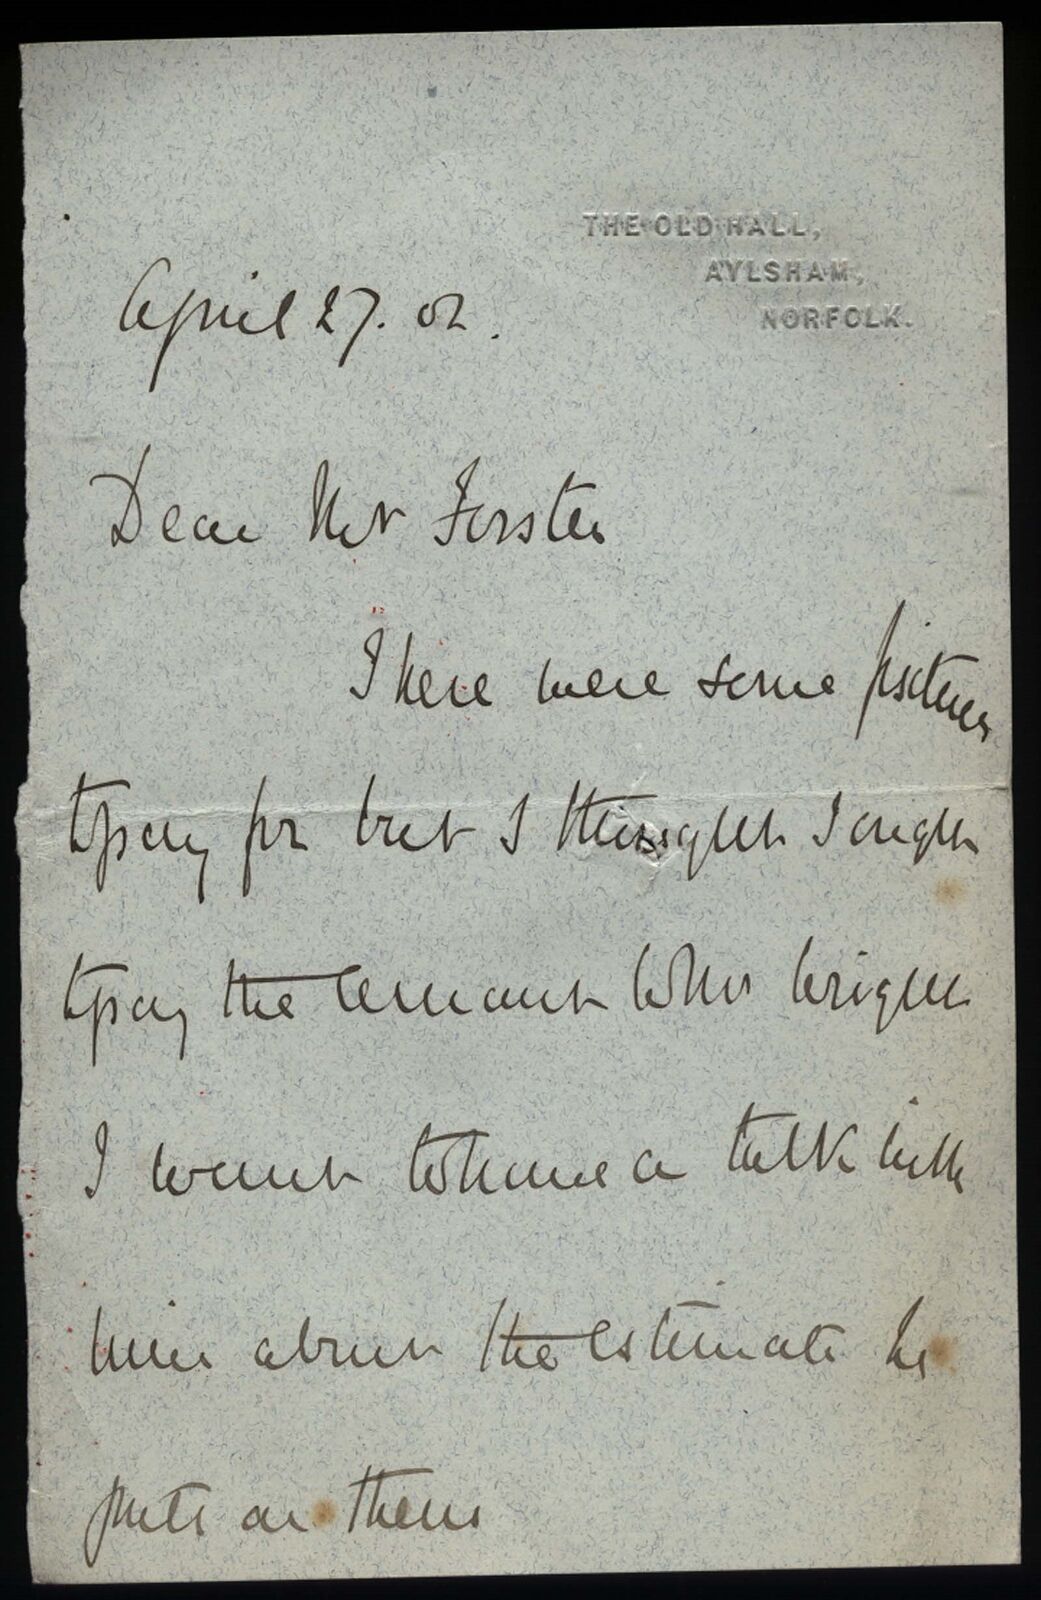 THE OLD HALL,
AYLSHAM,
NORFOLK.
April 27. 02.
Dear Mr Forster
There were some pictures
to pay for but I thought I ought
to pay the amount who
I want to have a talk with
him about the estimate he
puts on them